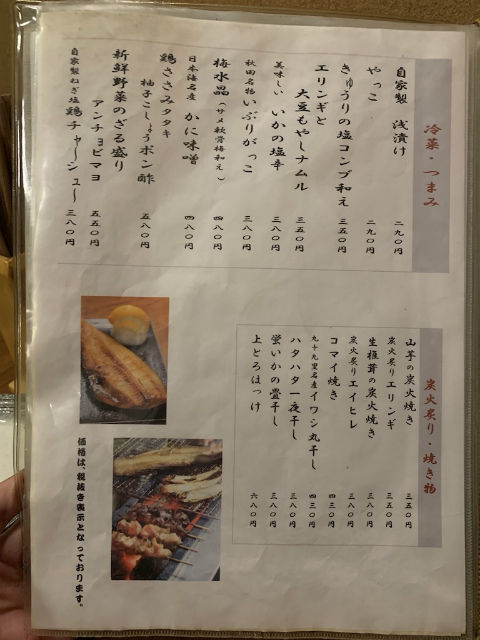 冷菜・つまみ
自家製 浅漬け 二九〇円
やっこ 二九〇円
きゅうりの塩コンブ和え 三五〇円
エリンギと
大豆もやしナムル 三五〇円
美味しい いかの塩辛 三八〇円
秋田名物 いぶりがっこ 三八〇円
梅水晶（サメ軟骨梅和え） 四八〇円
日本海名産 かに味噌 四八〇円
鶏ささみタタキ
柚子こしょうポン酢 五八〇円
新鮮野菜のざる盛り
アンチョビマヨ 五五〇円
自家製ねぎ塩鶏チャーシュー 三八〇円
炭火炙り・焼き物
山芋の炭火焼き 三五〇円
炭火炙りエリンギ 三五〇円
生椎茸の炭火焼き 三八〇円
炭火炙りエイヒレ 三八〇円
コマイ焼き 四三〇円
九十九里名産 イワシ丸干し 四三〇円
ハタハタ一夜干し 三八〇円
蛍いかの畳干し 三八〇円
上とろほっけ 六八〇円
価格は、税抜き表示となっております。